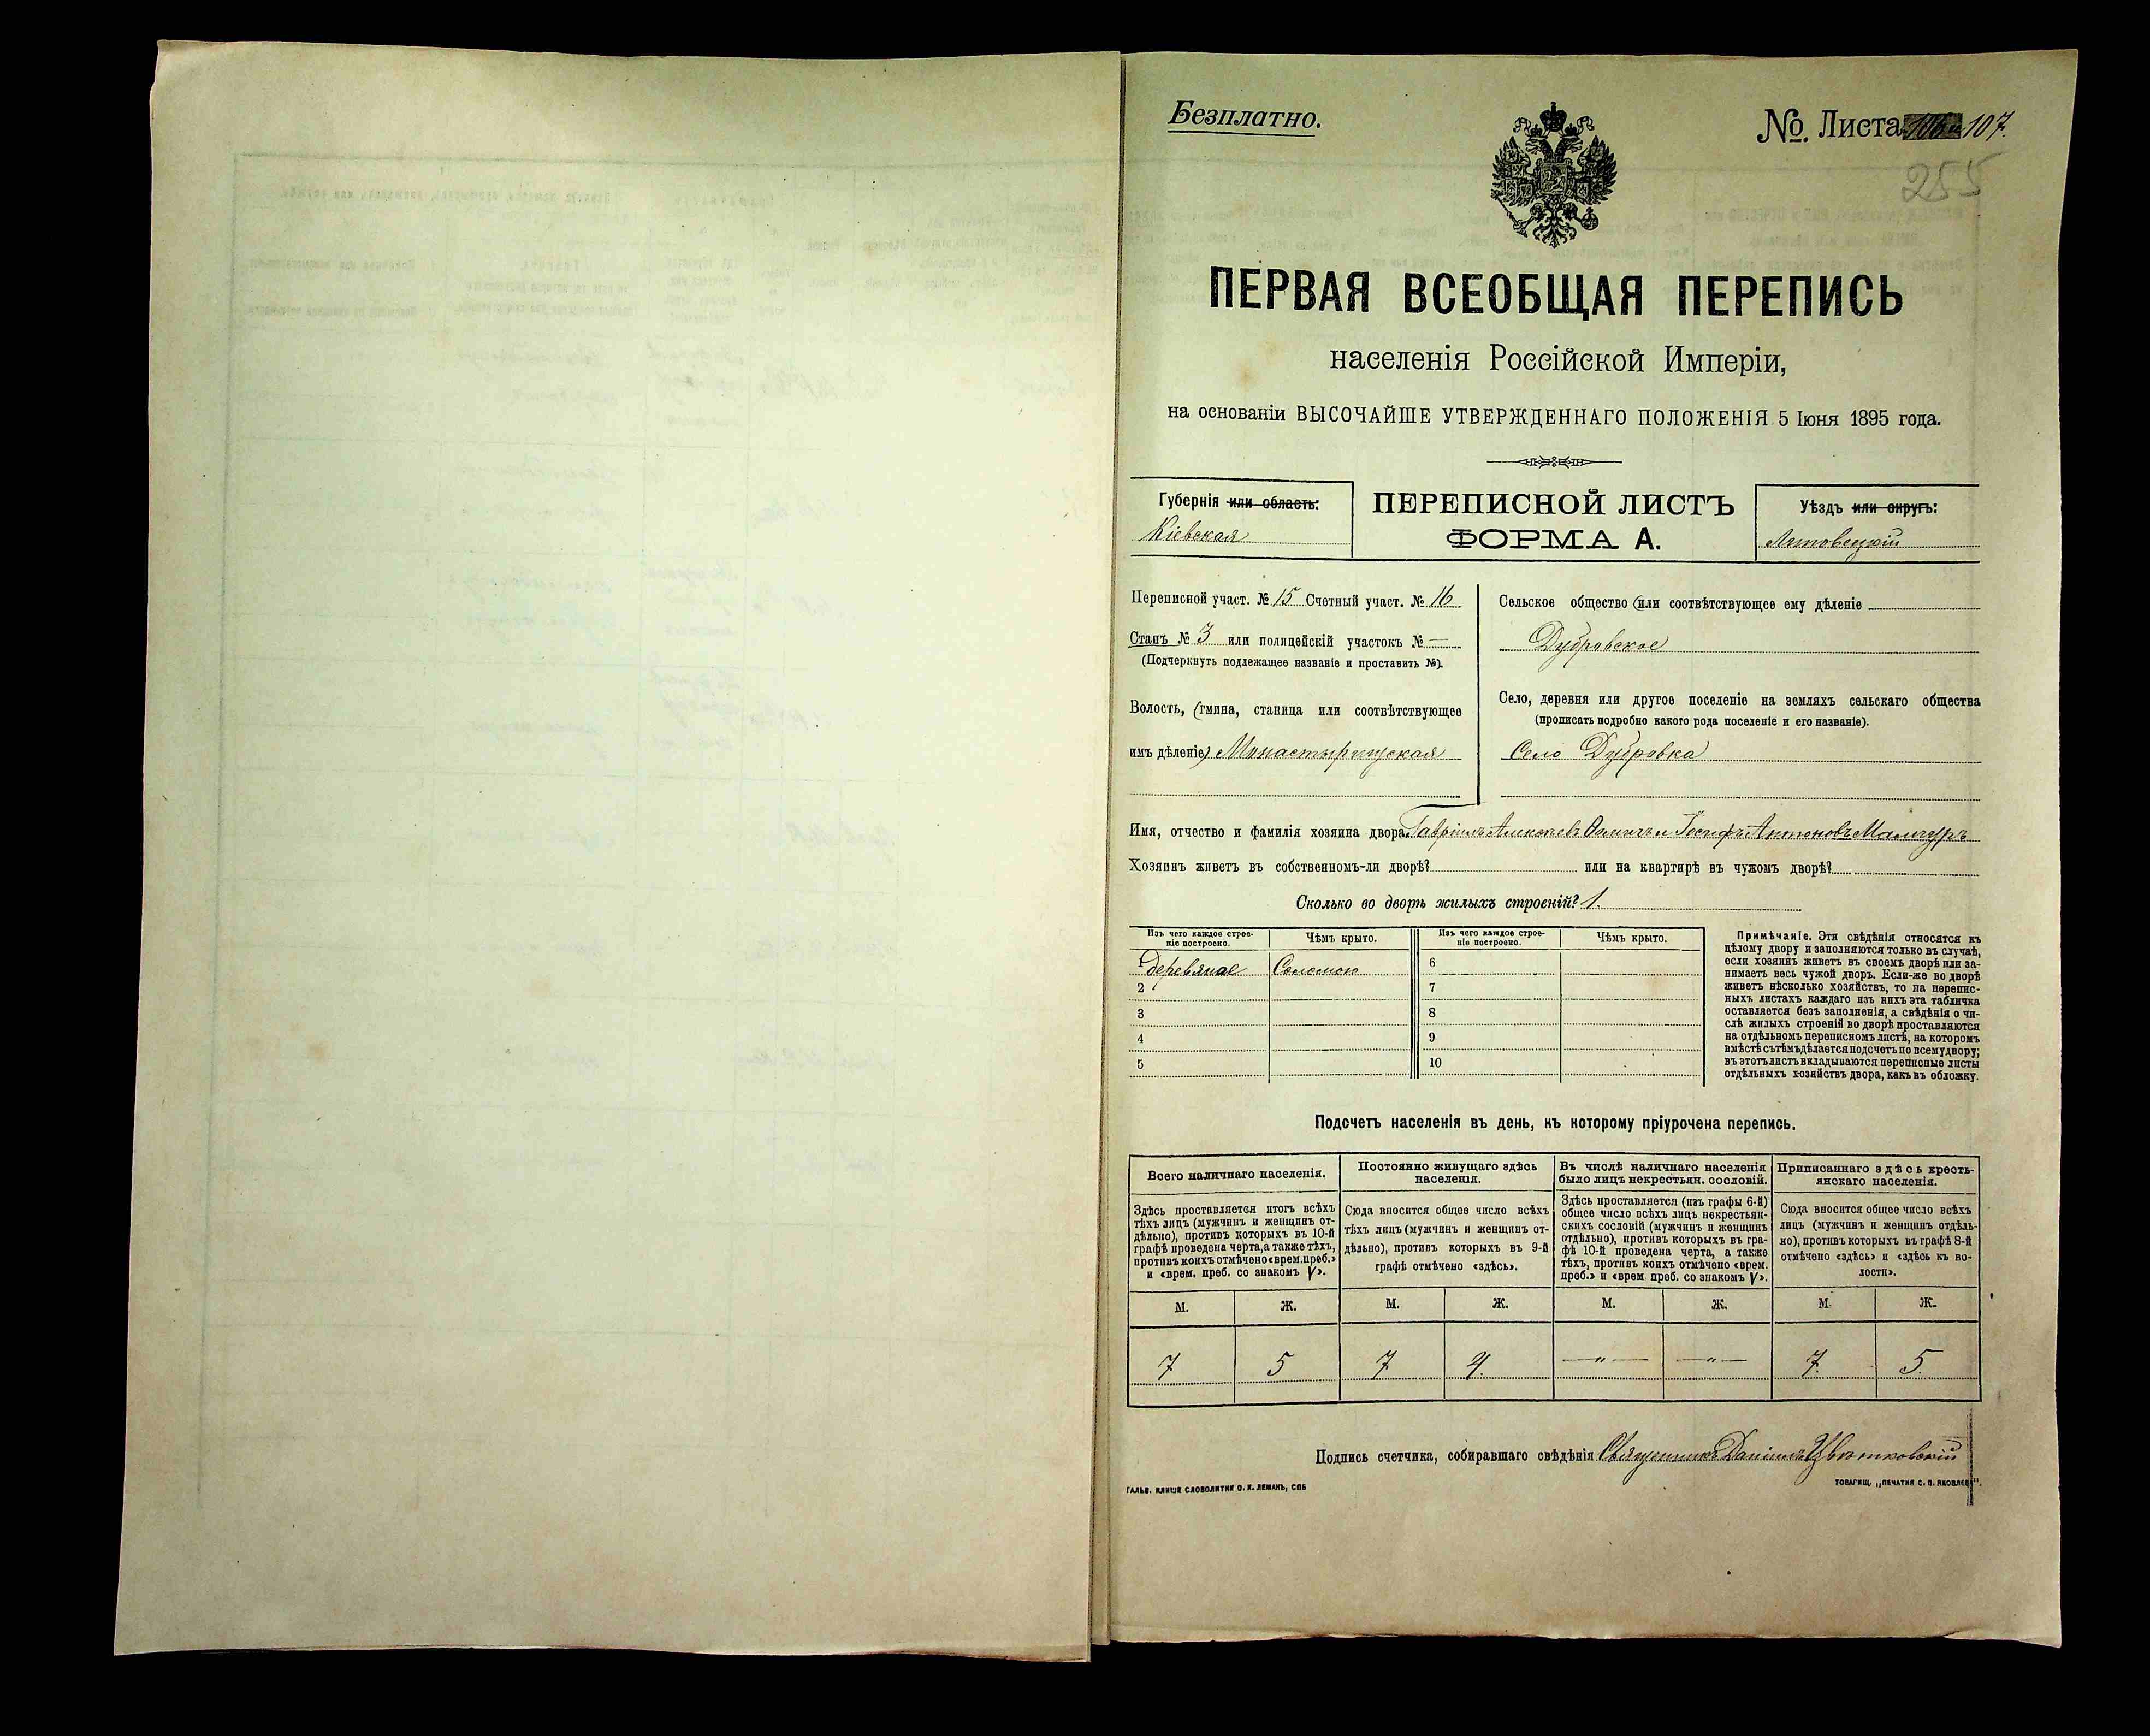 Безплатно.
№ Листа 106 и 107.
255
ПЕРВАЯ ВСЕОБЩАЯ ПЕРЕПИСЬ
населенія Россійской Имперіи,
на основаніи ВЫСОЧАЙШЕ УТВЕРЖДЕННАГО ПОЛОЖЕНІЯ 5 Іюня 1895 года.
Губернія или область:
Кіевская
ПЕРЕПИСНОЙ ЛИСТЪ
ФОРМА А.
Уѣздъ или округъ:
Липовецкій
Переписной участ. № 15 Счетный участ. № 16
Станъ № 3 или полицейскій участокъ № —
(Подчеркнуть подлежащее названіе и проставить №).
Волость, (гмина, станица или соотвѣтствующее
имъ дѣленіе) Монастырищская
Сельское общество (или соотвѣтствующее ему дѣленіе
Дубровское
Село, деревня или другое поселеніе на земляхъ сельскаго общества
(прописать подробно какого рода поселеніе и его названіе).
Село Дубровка
Имя, отчество и фамилія хозяина двора Гавріилъ Алексѣевъ и Іосифъ Антоновъ
Хозяинъ живетъ въ собственномъ-ли дворѣ? или на квартирѣ въ чужомъ дворѣ?
Сколько во дворѣ жилыхъ строеній? 1.
Изъ чего каждое строе-
ніе построено.
Чѣмъ крыто.
Изъ чего каждое строе-
ніе построено.
Чѣмъ крыто.
1 деревяное Соломою
2
3
4
5
6
7
8
9
10
Примѣчаніе. Эти свѣдѣнія относятся къ
цѣлому двору и заполняются только въ случаѣ,
если хозяинъ живетъ въ своемъ дворѣ или за-
нимаетъ весь чужой дворъ. Если-же во дворѣ
живетъ нѣсколько хозяйствъ, то на перепис-
ныхъ листахъ каждаго изъ нихъ эта табличка
оставляется безъ заполненія, а свѣдѣнія о чи-
слѣ жилыхъ строеній во дворѣ проставляются
на отдѣльномъ переписномъ листѣ, на которомъ
вмѣстѣ съ тѣмъ дѣлается подсчетъ по всему двору;
въ этотъ листъ вкладываются переписные листы
отдѣльныхъ хозяйствъ двора, какъ въ обложку.
Подсчетъ населенія въ день, къ которому пріурочена перепись.
Всего наличнаго населенія.
Здѣсь проставляется итогъ всѣхъ
тѣхъ лицъ (мужчинъ и женщинъ от-
дѣльно), противъ которыхъ въ 10-й
графѣ проведена черта, а также тѣхъ,
противъ коихъ отмѣчено «врем. преб.»
и «врем. преб. со знакомъ V».
Постоянно живущаго здѣсь
населенія.
Сюда вносится общее число всѣхъ
тѣхъ лицъ (мужчинъ и женщинъ от-
дѣльно), противъ которыхъ въ 9-й
графѣ отмѣчено «здѣсь».
Въ числѣ наличнаго населенія
было лицъ некрестьян. сословій.
Здѣсь проставляется (изъ графы 6-й)
общее число всѣхъ лицъ некрестьян-
скихъ сословій (мужчинъ и женщинъ
отдѣльно), противъ которыхъ въ гра-
фѣ 10-й проведена черта, а также
тѣхъ, противъ коихъ отмѣчено «врем.
преб.» и «врем. преб. со знакомъ V».
Приписаннаго здѣсь кресть-
янскаго населенія.
Сюда вносится общее число всѣхъ
лицъ (мужчинъ и женщинъ отдѣль-
но), противъ которыхъ въ графѣ 8-й
отмѣчено «здѣсь» и «здѣсь къ во-
лости».
М. Ж. М. Ж. М. Ж. М. Ж.
7 5 7 4. —„— —„— 7. 5.
Подпись счетчика, собиравшаго свѣдѣнія Священникъ Даніилъ Цвѣтковскій
ГАЛЬВ. КЛИШЕ СЛОВОЛИТНИ О. И. ЛЕМАНЪ, СПБ
ТОВАРИЩ. „ПЕЧАТНЯ С. П. ЯКОВЛЕВА".